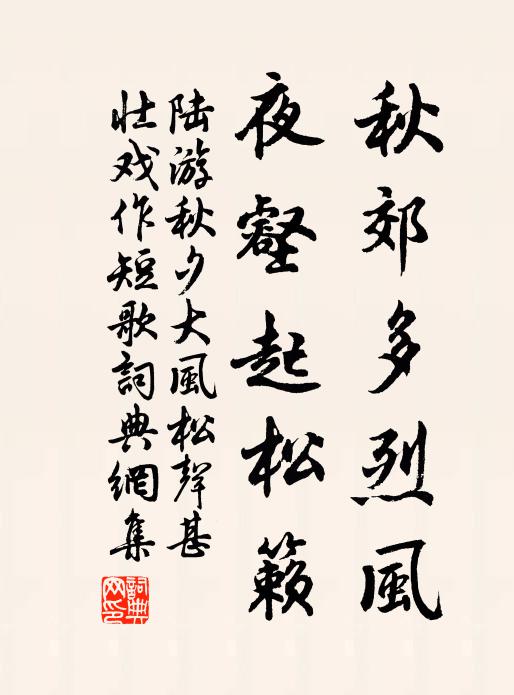 秋郊多烈風
夜壑起松籟
陆游秋夕大風松聲甚
壮戏作短歌詞典網集
詞典網印